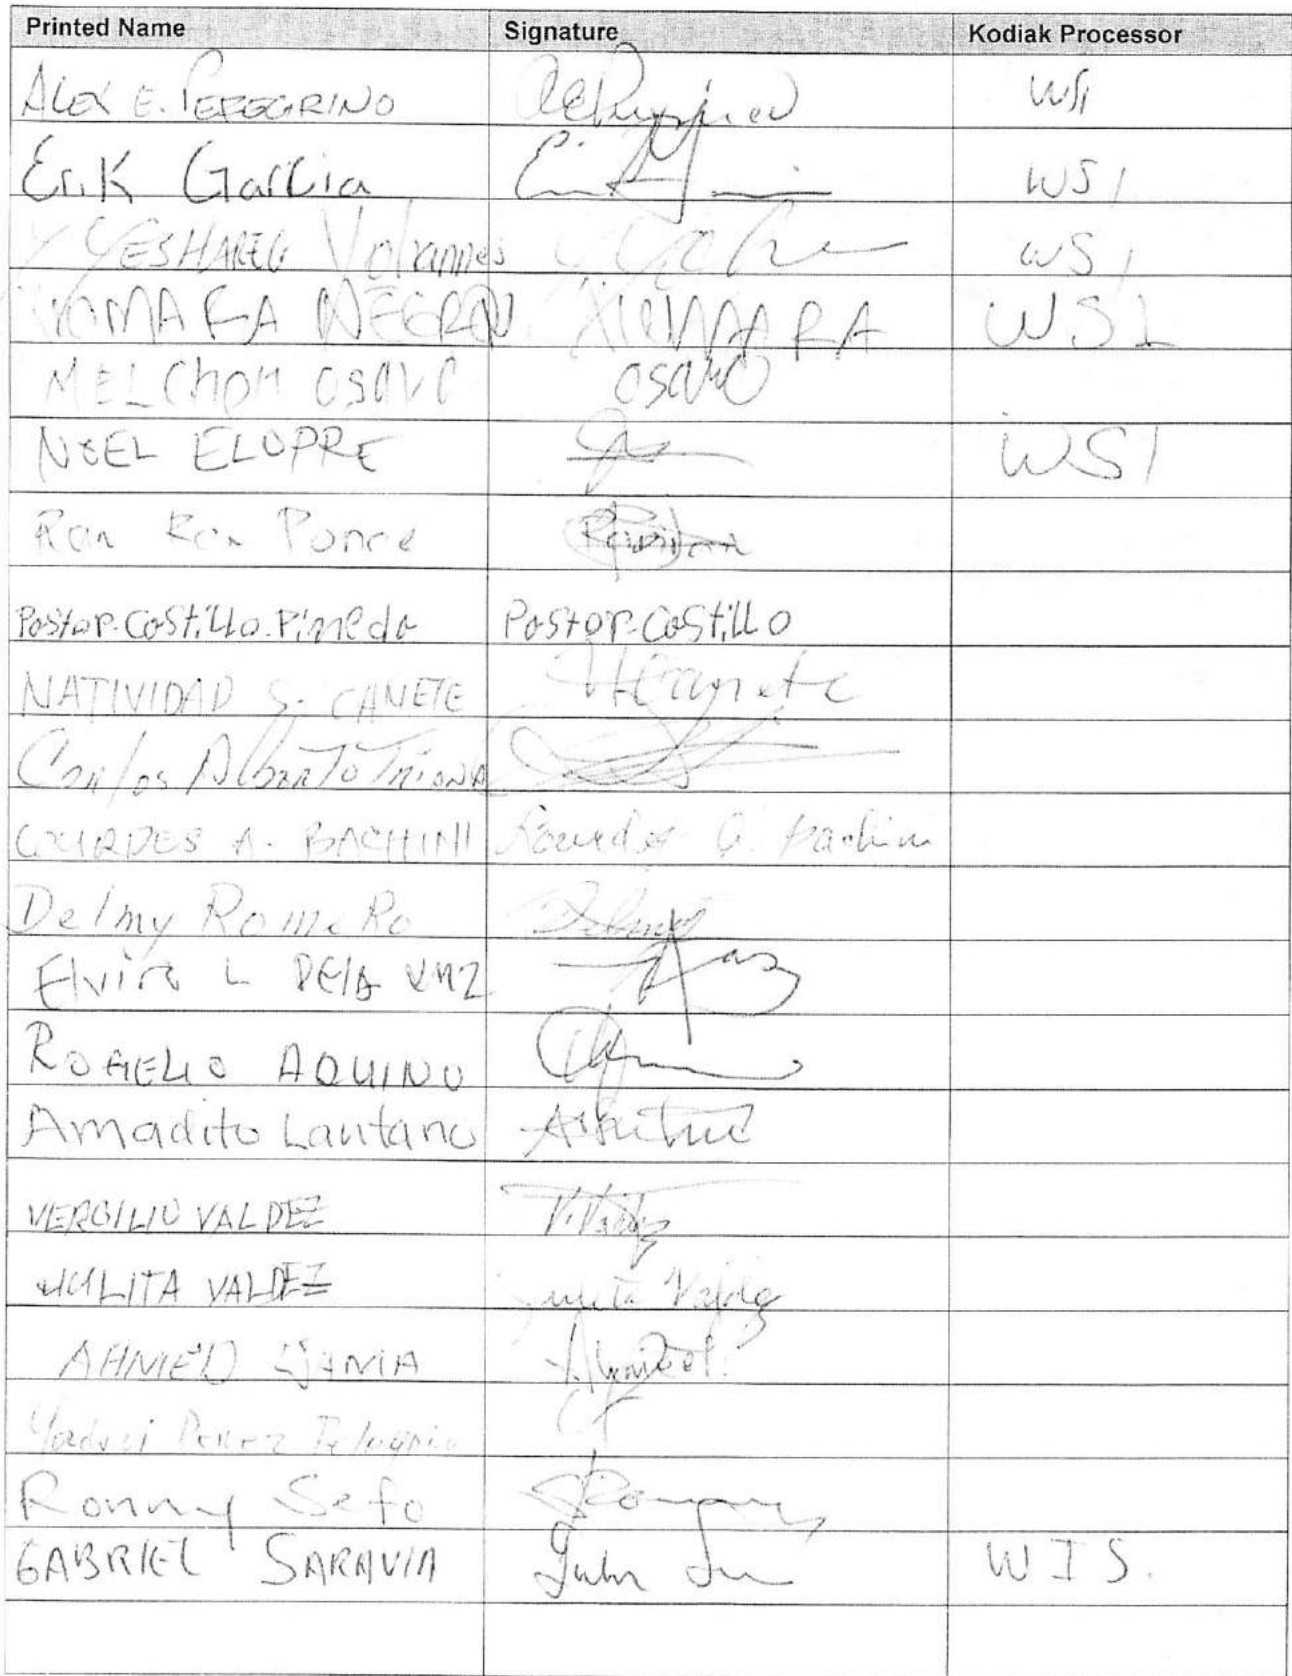 Printed Name Signature Kodiak Processor
ALEX E. PEREGRINO WSI
Erik Garcia WSI
YESHAREG Yohannes WSI
NEGRON XIOMARA WSI
OSAVO
NOEL ELOPRE WSI
Ron Ron Ponce
Pastor Costillo Pineda Pastor Costillo
NATIVIDAD S. CANETE Canete
Carlos Alberto Triana
LOURDES A. BACHINI Lourdes A. Bachini
Delmy RomeRo Delmy
Elvira L DELA
ROGELIO AQUINO
Amadito Lautano
VERGILIO VALDEZ V. Valdez
JULITA VALDEZ Julita Valdez
AHMED Ahmed
Perez
Ronny Sefo Ronny
GABRIEL SARAVIA WIS.